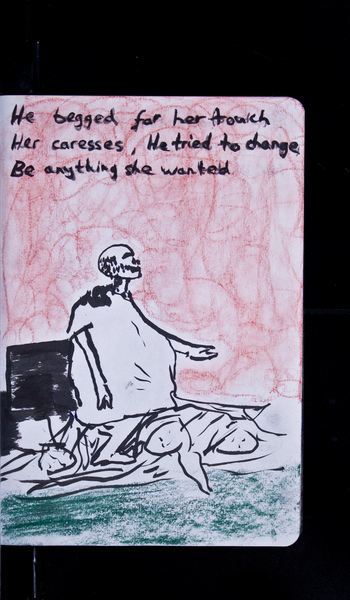 He begged for her touch
Her caresses, He tried to change
Be anything she wanted